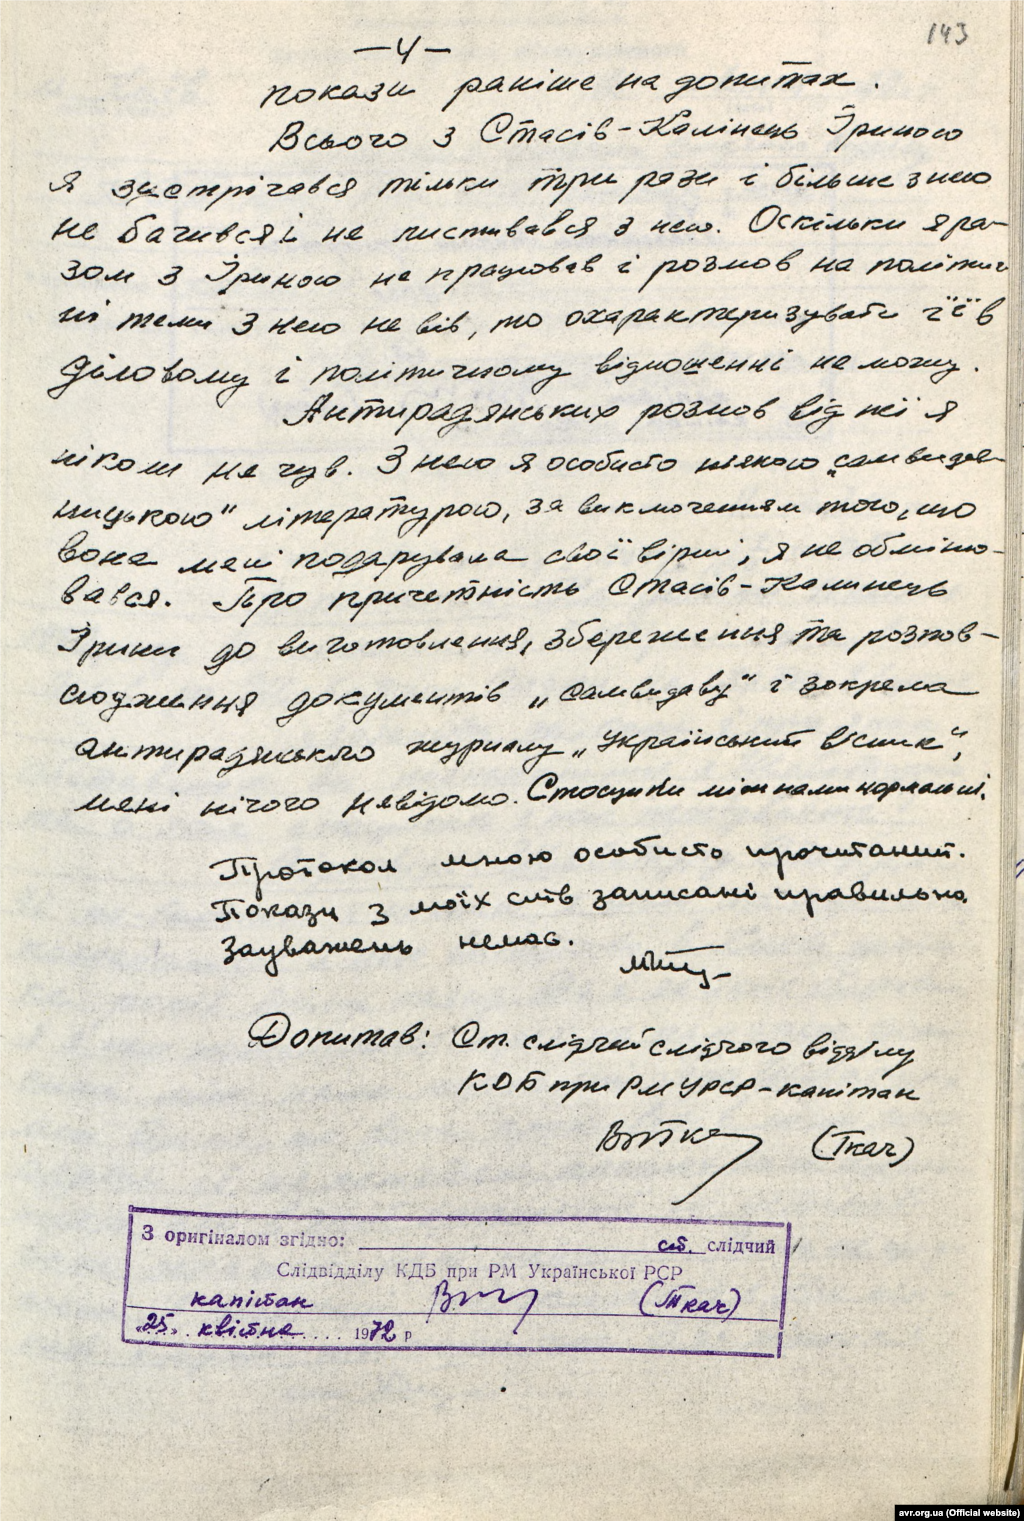 143
—4—
покази раніше на допитах.
Всього з Стасів-Калінець Іриною
я зустрічався тільки три рази і більше з нею
не бачився і не листувався з нею. Оскільки я ра-
зом з Іриною не працював і розмов на політич
ні теми з нею не вів, то охарактеризувати її в
діловому і політичному відношенні не можу.
Антирадянських розмов від неї я
ніколи не чув. З нею я особисто ніякою „самвидав-
ницькою" літературою, за виключенням того, що
вона мені подарувала свої вірші, я не обміню-
вався. Про причетність Стасів-Калинець
Ірини до виготовлення, збереження та розпов-
сюдження документів „самвидаву" і зокрема
антирадянського журналу „Український вісник",
мені нічого невідомо. Стосунки між нами нормальні.
Протокол мною особисто прочитаний.
Покази з моїх слів записані правильно.
Зауважень немає.
Допитав: Ст. слідчий слідчого відділу
КДБ при РМ УРСР-капітан
(Ткач)
З оригіналом згідно: ст. слідчий
Слідвідділу КДБ при РМ Української РСР
капітан (Ткач)
„25" квітня 1972 р
avr.org.ua (Official website)